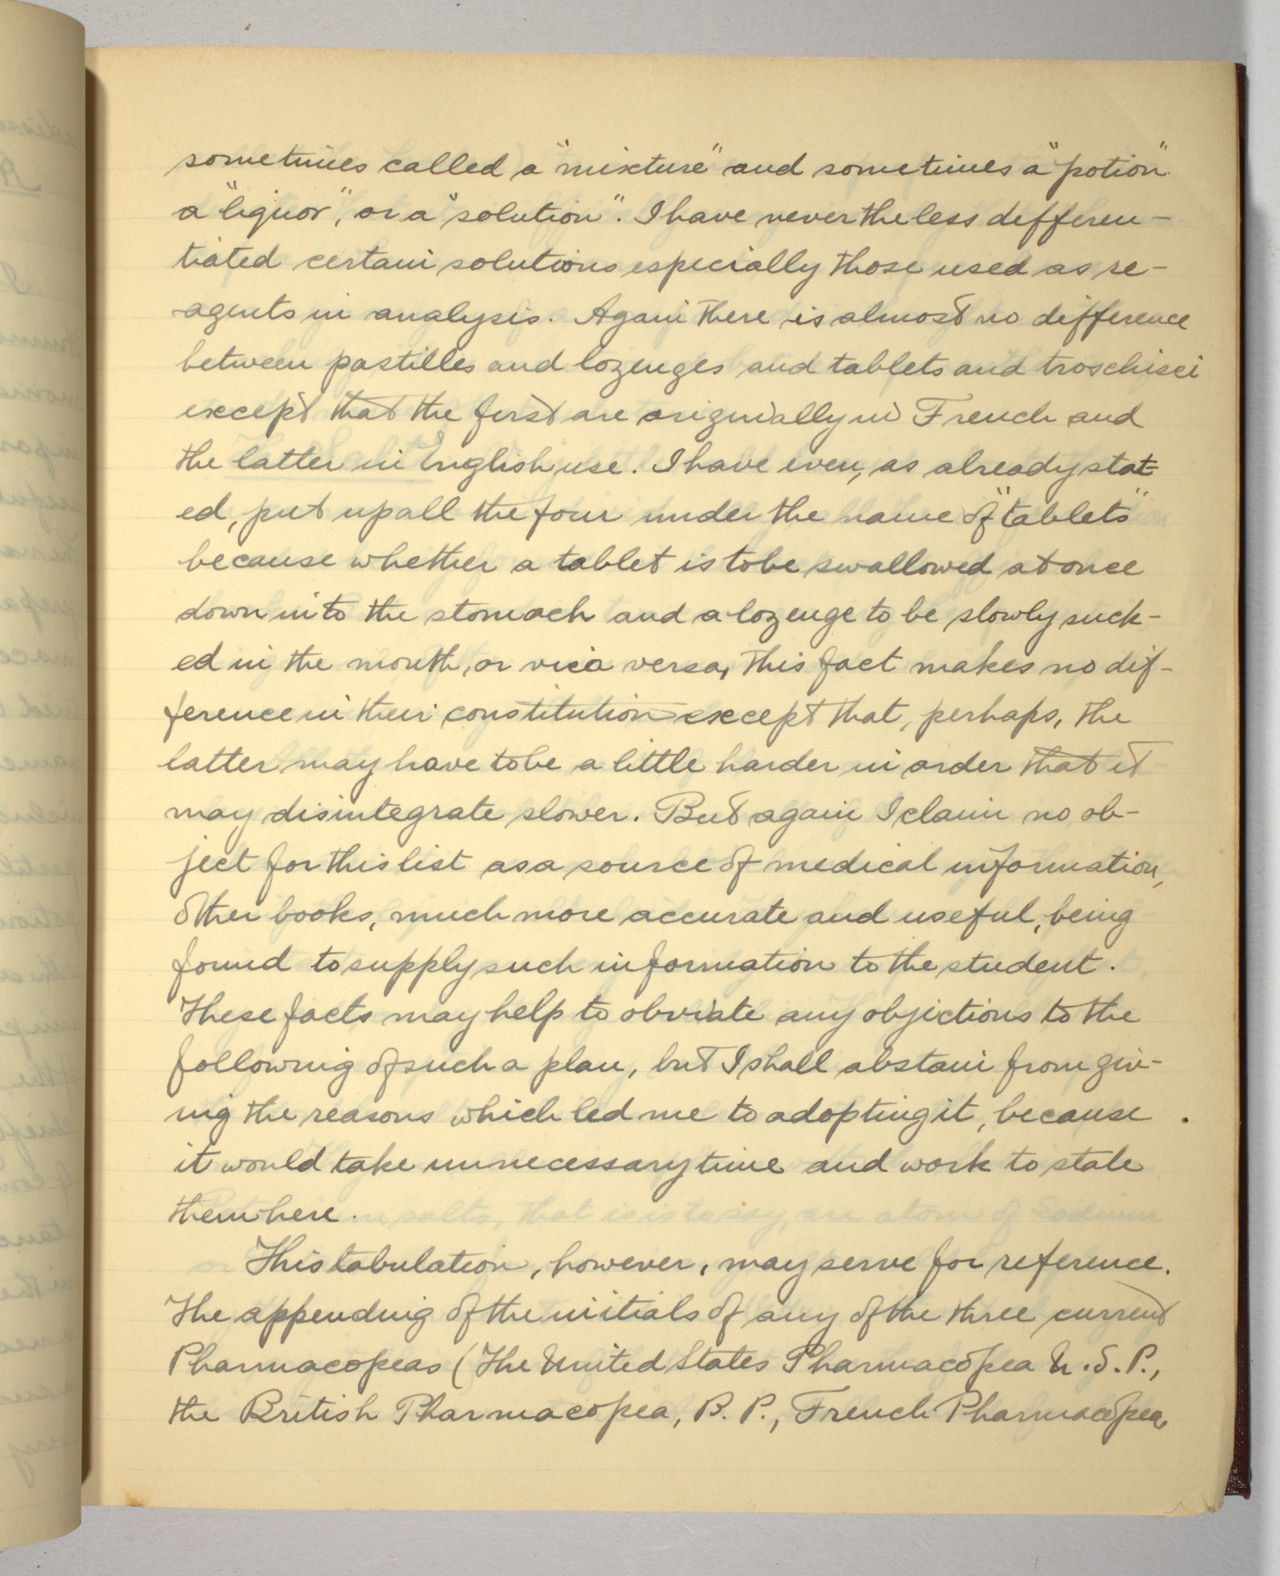 sometimes called a "mixture" and sometimes a "potion"
a "liquor", or a "solution". I have nevertheless differen-
tiated certain solutions especially those used as re-
agents in analysis. Again there is almost no difference
between pastilles and lozenges and tablets and troschisci
except that the first are originially in French and
the latter in English use. I have even, as already stat-
ed, put up all the four under the name of "tablets"
because whether a tablet is to be swallowed at once
down into the stomach and a lozenge to be slowly suck-
ed in the mouth, or vica versa, this fact makes no dif-
ference in their constitution except that, perhaps, the
latter may have to be a little harder in order that it
may disintegrate slower. But again I claim no ob-
ject for this list as a source of medical information,
other books, much more accurate and useful, being
found to supply such information to the student.
These facts may help to obviate any objections to the
following of such a plan, but I shall abstain from giv-
ing the reasons which led me to adopting it, because
it would take unnecessary time and work to state
them here.
This tabulation, however, may serve for reference.
The appending of the initials of any of the three current
Pharmacopeas (The United States Pharmacopea U.S.P.,
the British Pharmacopea, B.P., French Pharmacopea,